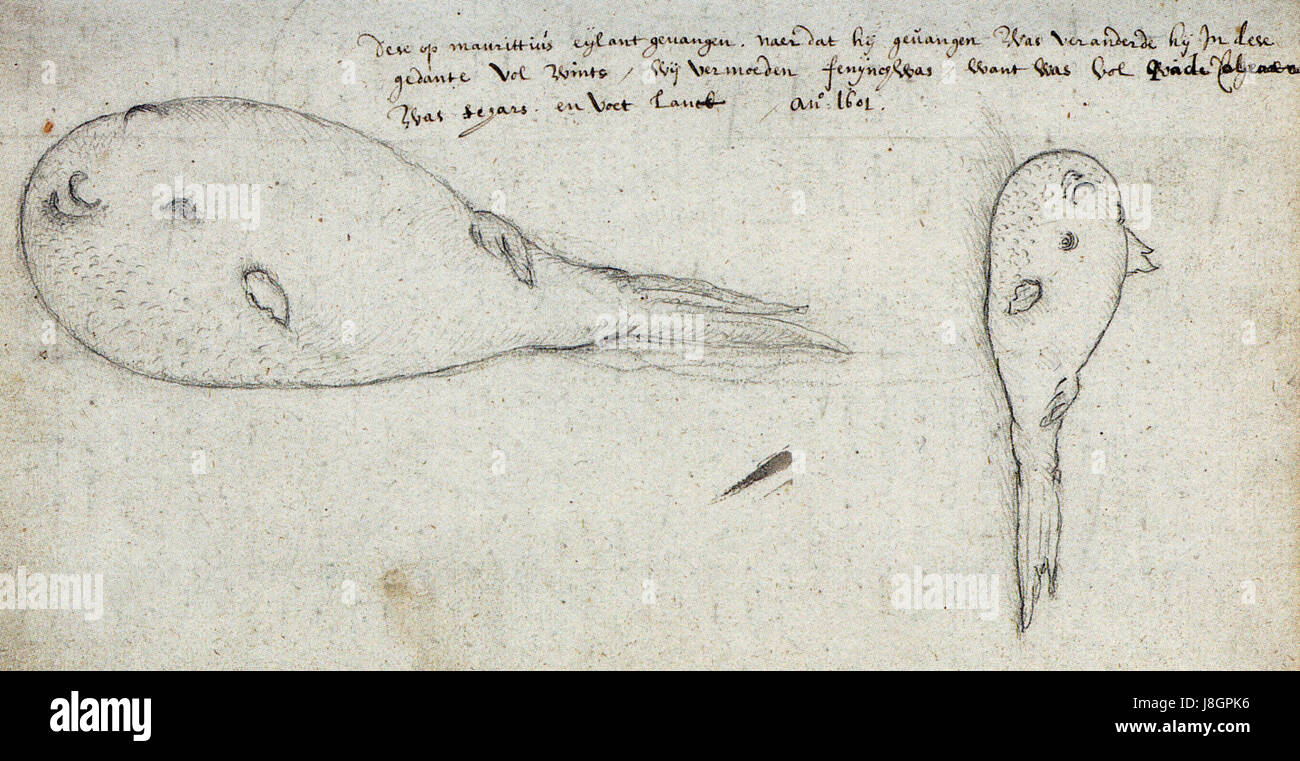 Dese op maurittius eijlant gevangen. naer dat hij gevangen Was veranderde hij In dese
gedante Vol Wints / Wij vermoeden fenijnich Was Want Was Vol quade
Was en Voet Lanck / Ano. 1601.
alamy
alamy
alamy
alamy
alamy
a
alamy
Image ID: J8GPK6
www.alamy.com